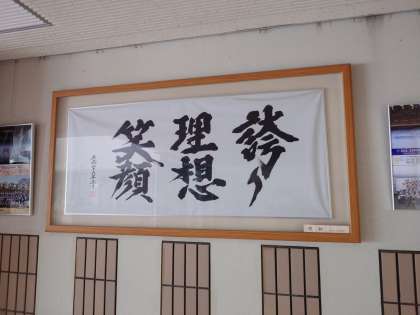 誇り
理想
笑顔